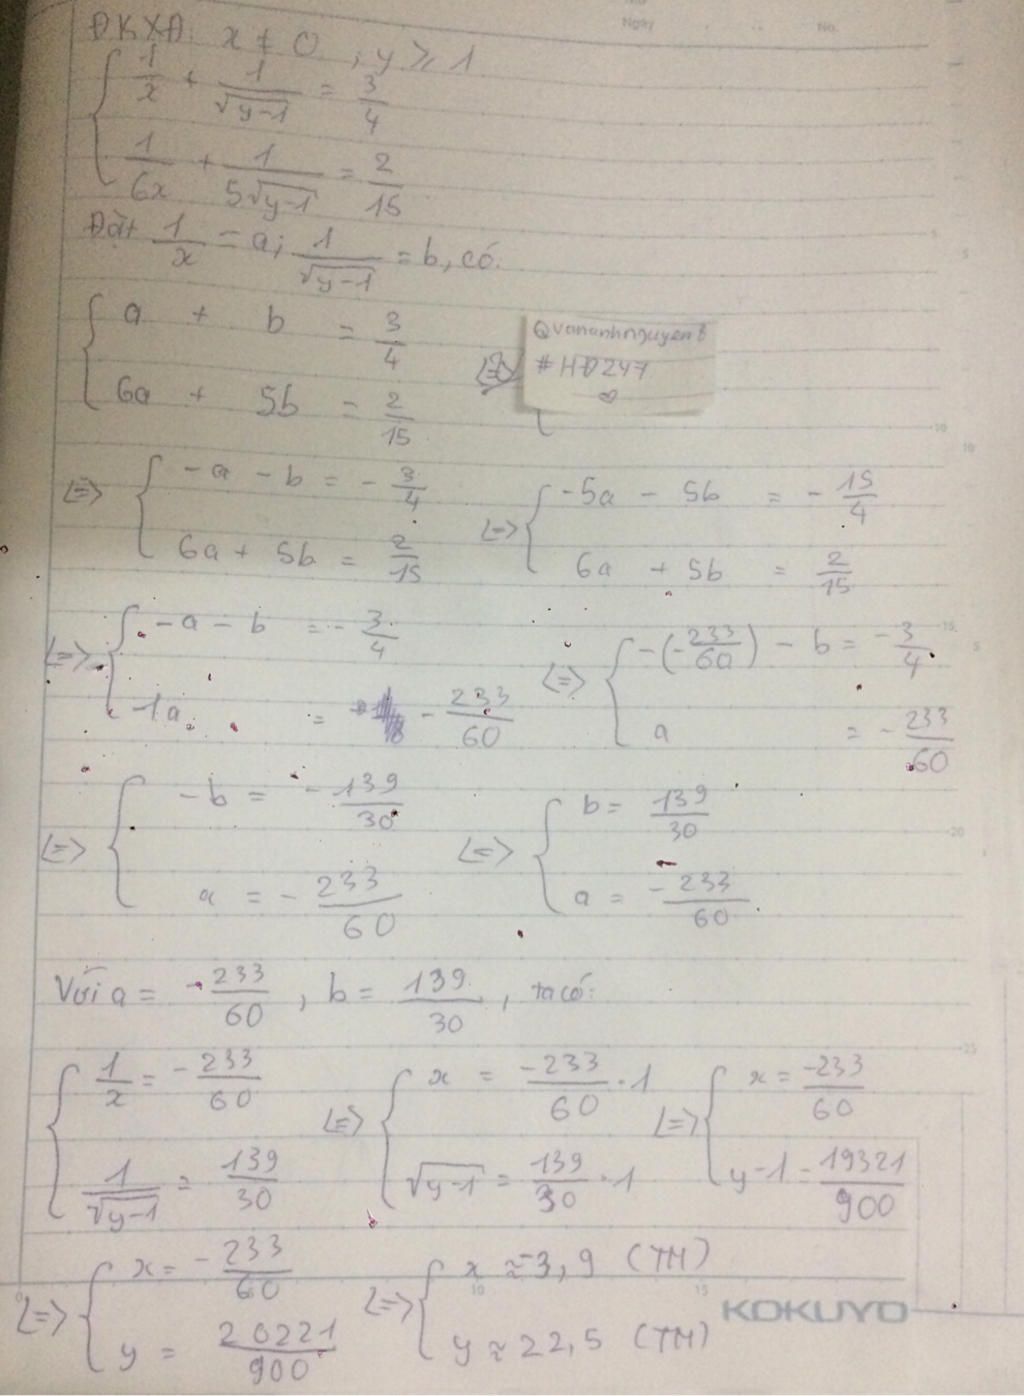 Ngày No.
ĐKXĐ: x ≠ 0 ; y ⩾ 1
{ 1/x + 1/√(y-1) = 3/4
1/6x + 1/5√(y-1) = 2/15
Đặt 1/x = a; 1/√(y-1) = b, có:
{ a + b = 3/4
6a + 5b = 2/15
<=>
@vananhnguyen8
#HĐ247
♡
<=> { -a - b = -3/4
6a + 5b = 2/15
<=> { -5a - 5b = -15/4
6a + 5b = 2/15
<=> { -a - b = -3/4
1a = -233/60
<=> { -(-233/60) - b = -3/4
a = -233/60
<=> { -b = -139/30
a = -233/60
<=> { b = 139/30
a = -233/60
Với a = -233/60, b = 139/30, ta có:
{ 1/x = -233/60
1/√(y-1) = 139/30
<=> { x = -233/60 . 1
√(y-1) = 139/30 . 1
<=> { x = -233/60
y-1 = 19321/900
<=> { x = -233/60
y = 20221/900
<=> { x ≈ -3,9 (TM)
y ≈ 22,5 (TM)
KOKUYO
5
10
15
20
25
10
15